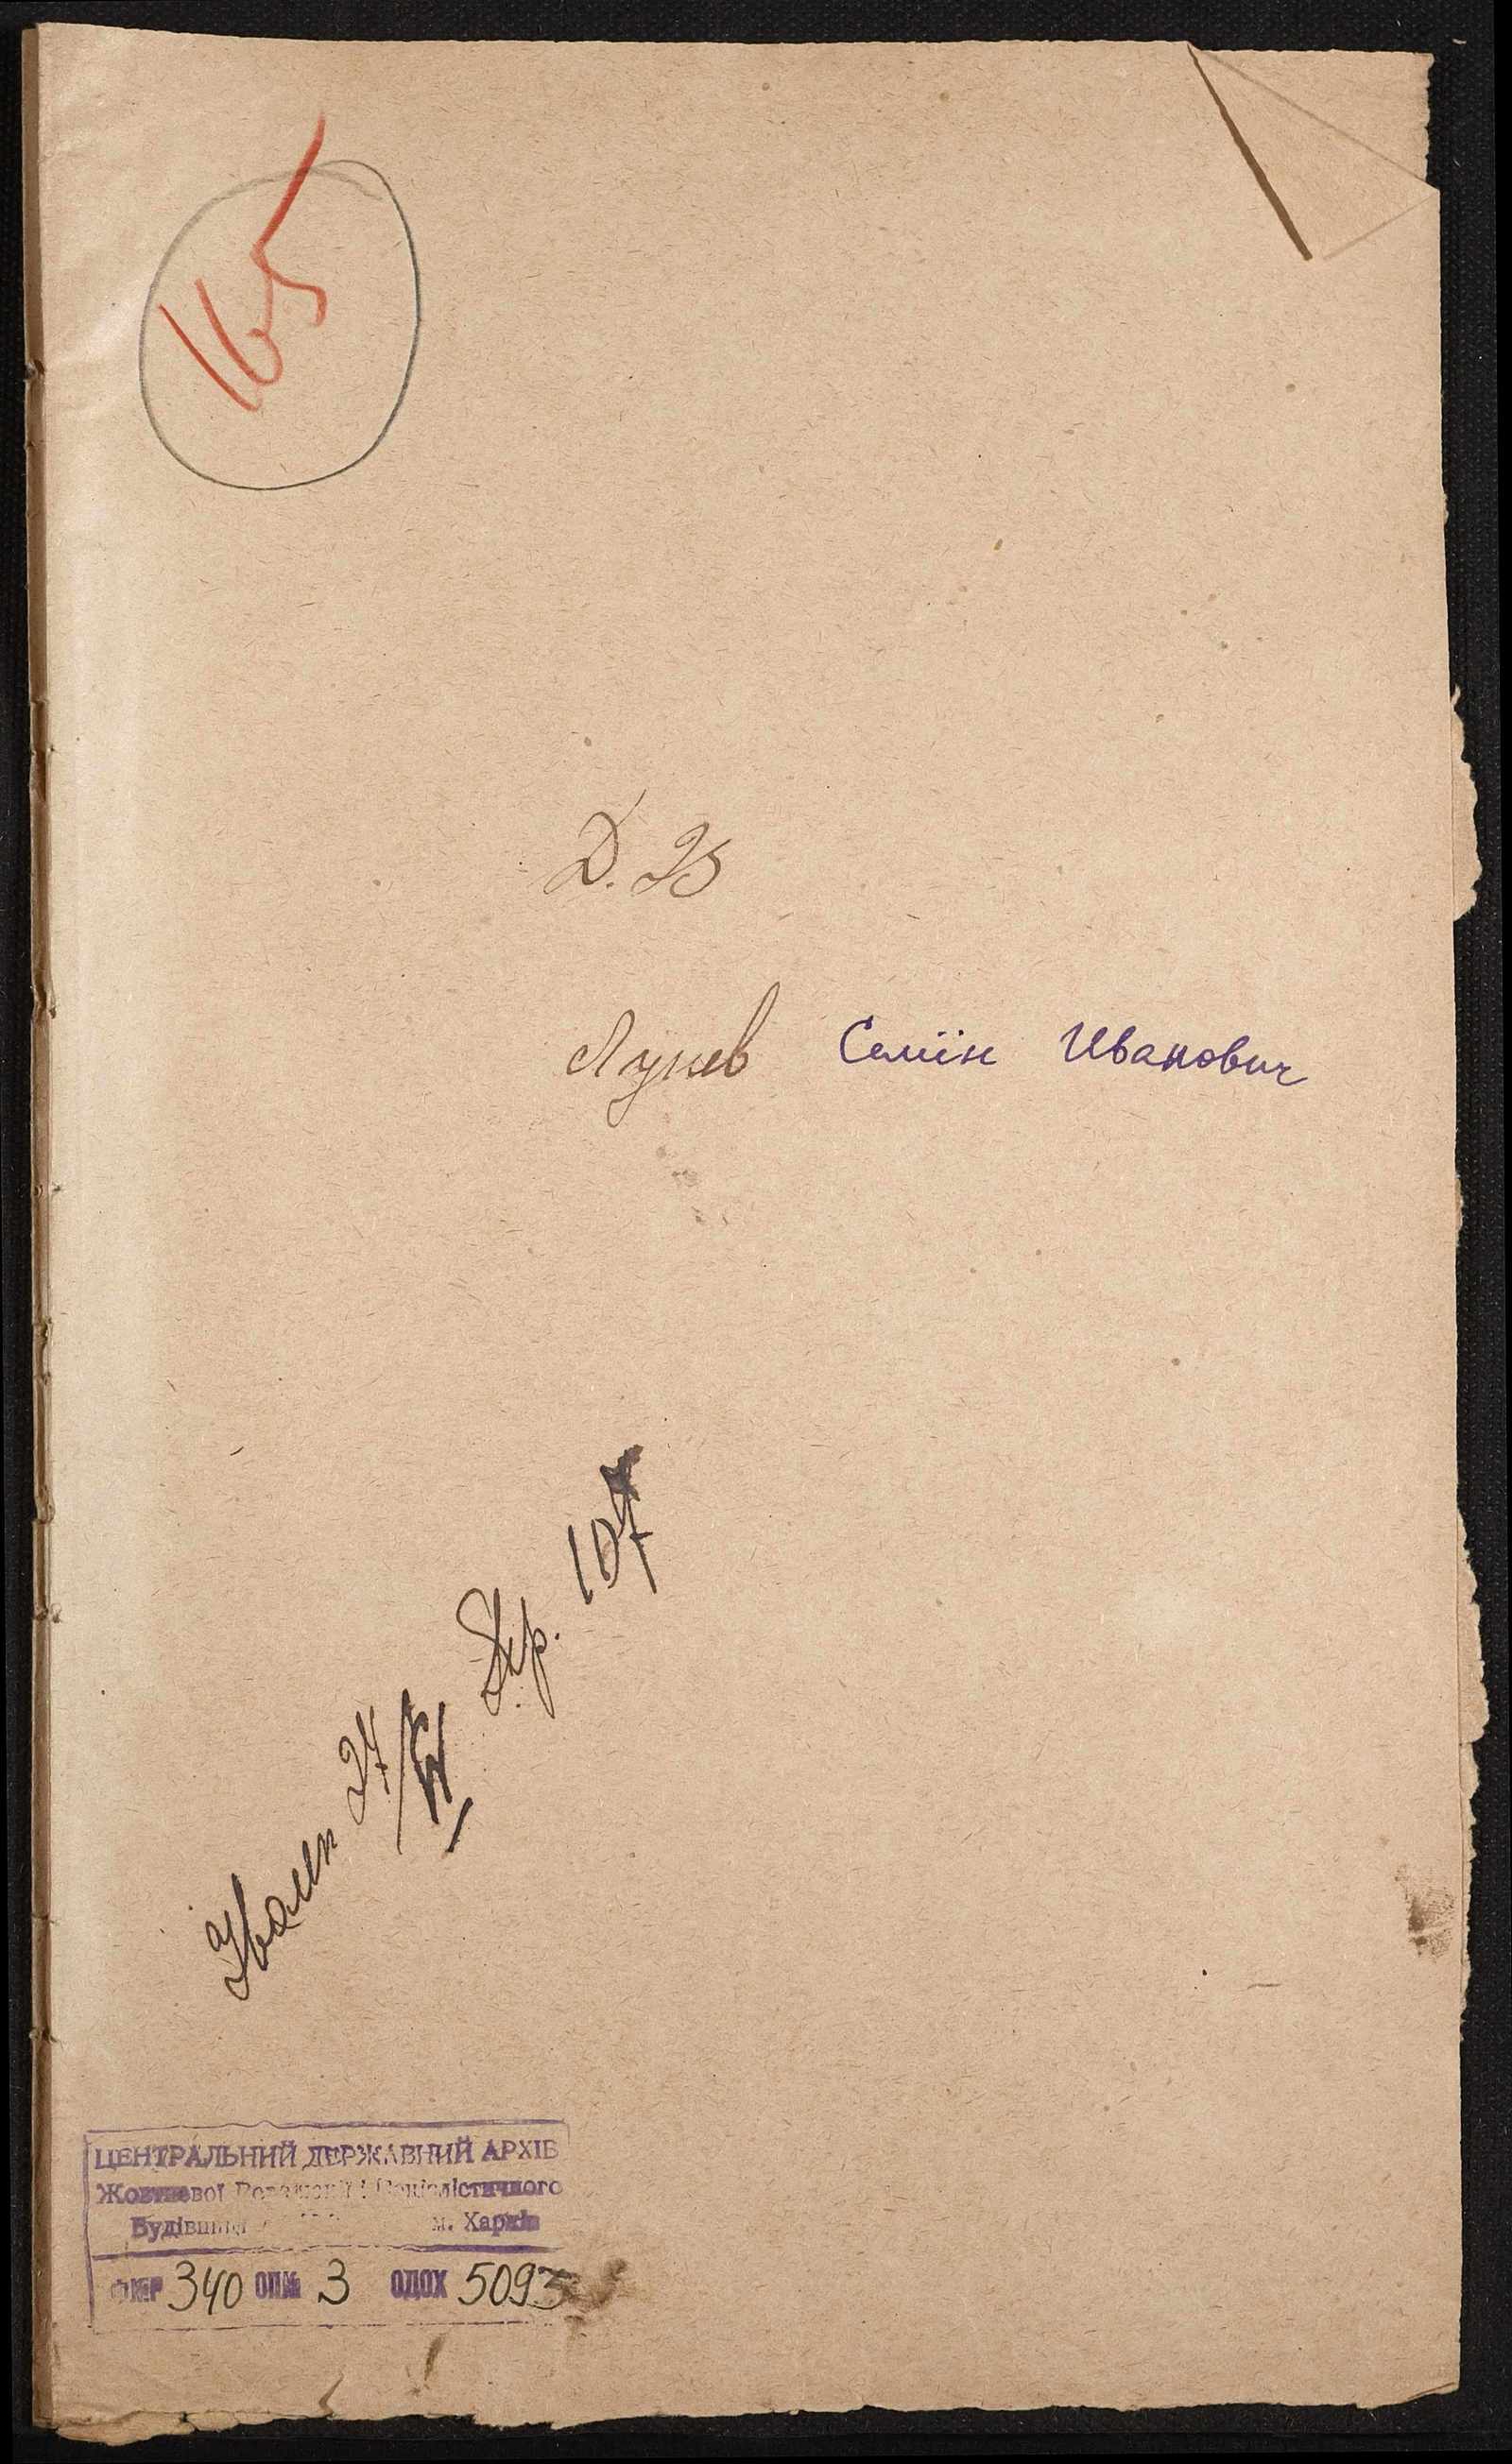 165
Д. 25
Лунев Семін Иванович
Звільн 27/VI Стр. 107
ЦЕНТРАЛЬНИЙ ДЕРЖАВНИЙ АРХІВ
Жовтневої Революції і Соціалістичного
Будівниц м. Харків
Ф№Р 340 ОП№ 3 ОДОХ 5093